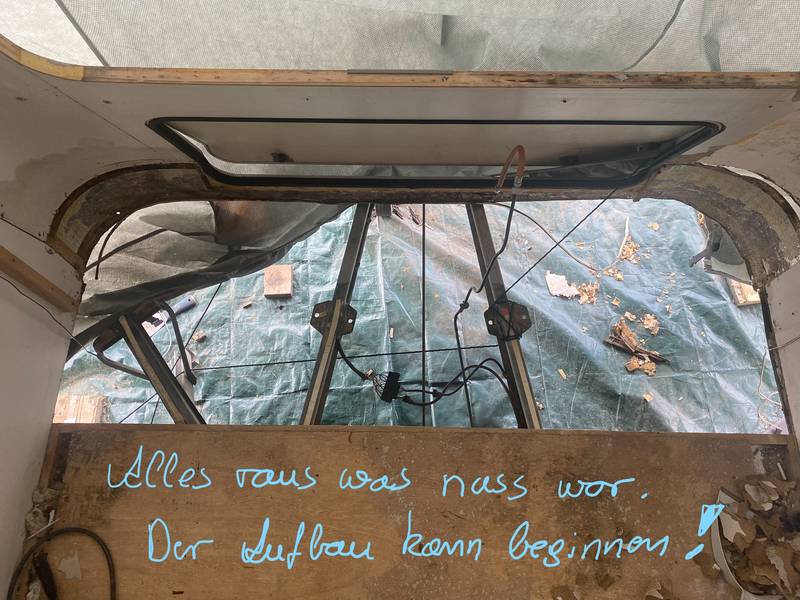 Alles raus was nass war.
Der Aufbau kann beginnen!